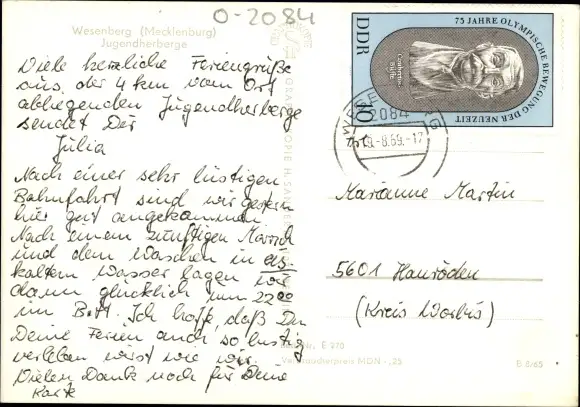 O-2084
Wesenberg (Mecklenburg)
Jugendherberge
Viele herzliche Feriengrüße
aus der 4 km vom Ort
abliegenden Jugendherberge
sendet Dir
Julia
Nach einer sehr lustigen
Bahnfahrt sind wir gestern
hier gut angekommen.
Nach einem zünftigen Marsch
und dem Waschen in eis-
kaltem Wasser lagen wir
dann glücklich um 22⁰⁰
im Bett. Ich hoffe, daß Du
Deine Ferien auch so lustig
verleben wirst wie wir.
Vielen Dank noch für Deine
Karte
DDR
75 JAHRE OLYMPISCHE BEWEGUNG DER NEUZEIT
Coubertin-
Büste
10
2084
-8.69.-17
Marianne Martin
5601 Hausröden
(Kreis Worbis)
E 970
Verbraucherpreis MDN -,25
B 8/65